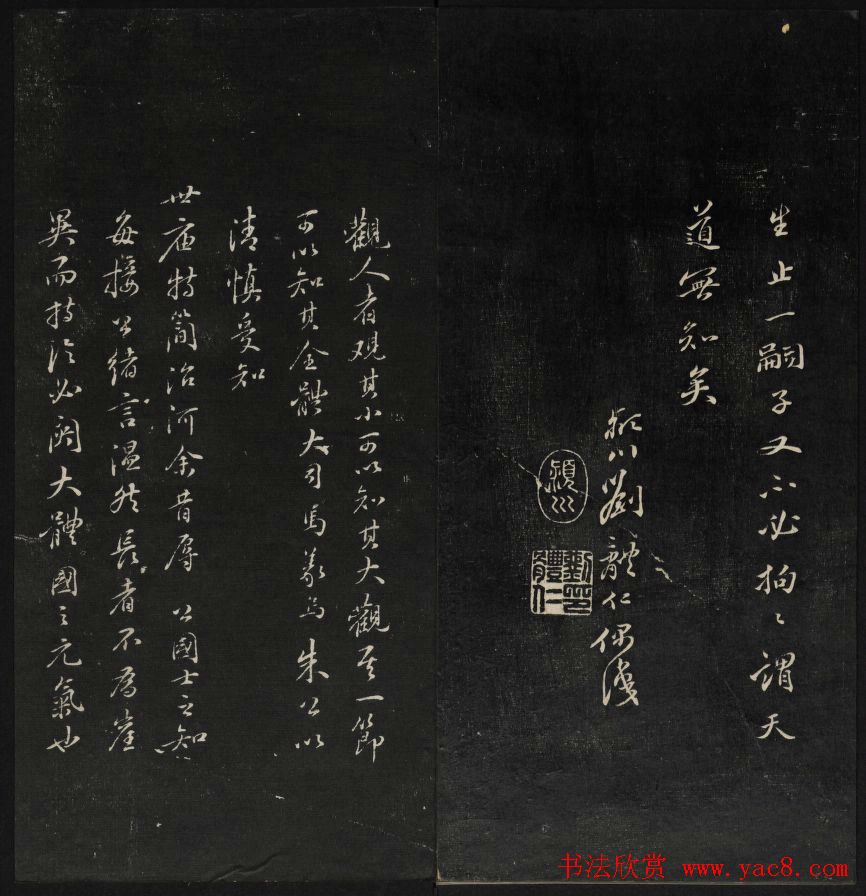 生止一嗣子又不必拘〻謂天
道無知矣
潁川劉體仁偶識
潁川
劉體仁
觀人者觀其小可以知其大觀其一節
可以知其全體大司馬義烏朱公以
清慎受知
世廟特簡治河余昔辱 公國士之知
每接公緒言溫然長者不為崖
異而持論必關大體國之元氣也
书法欣赏 www.yac8.com